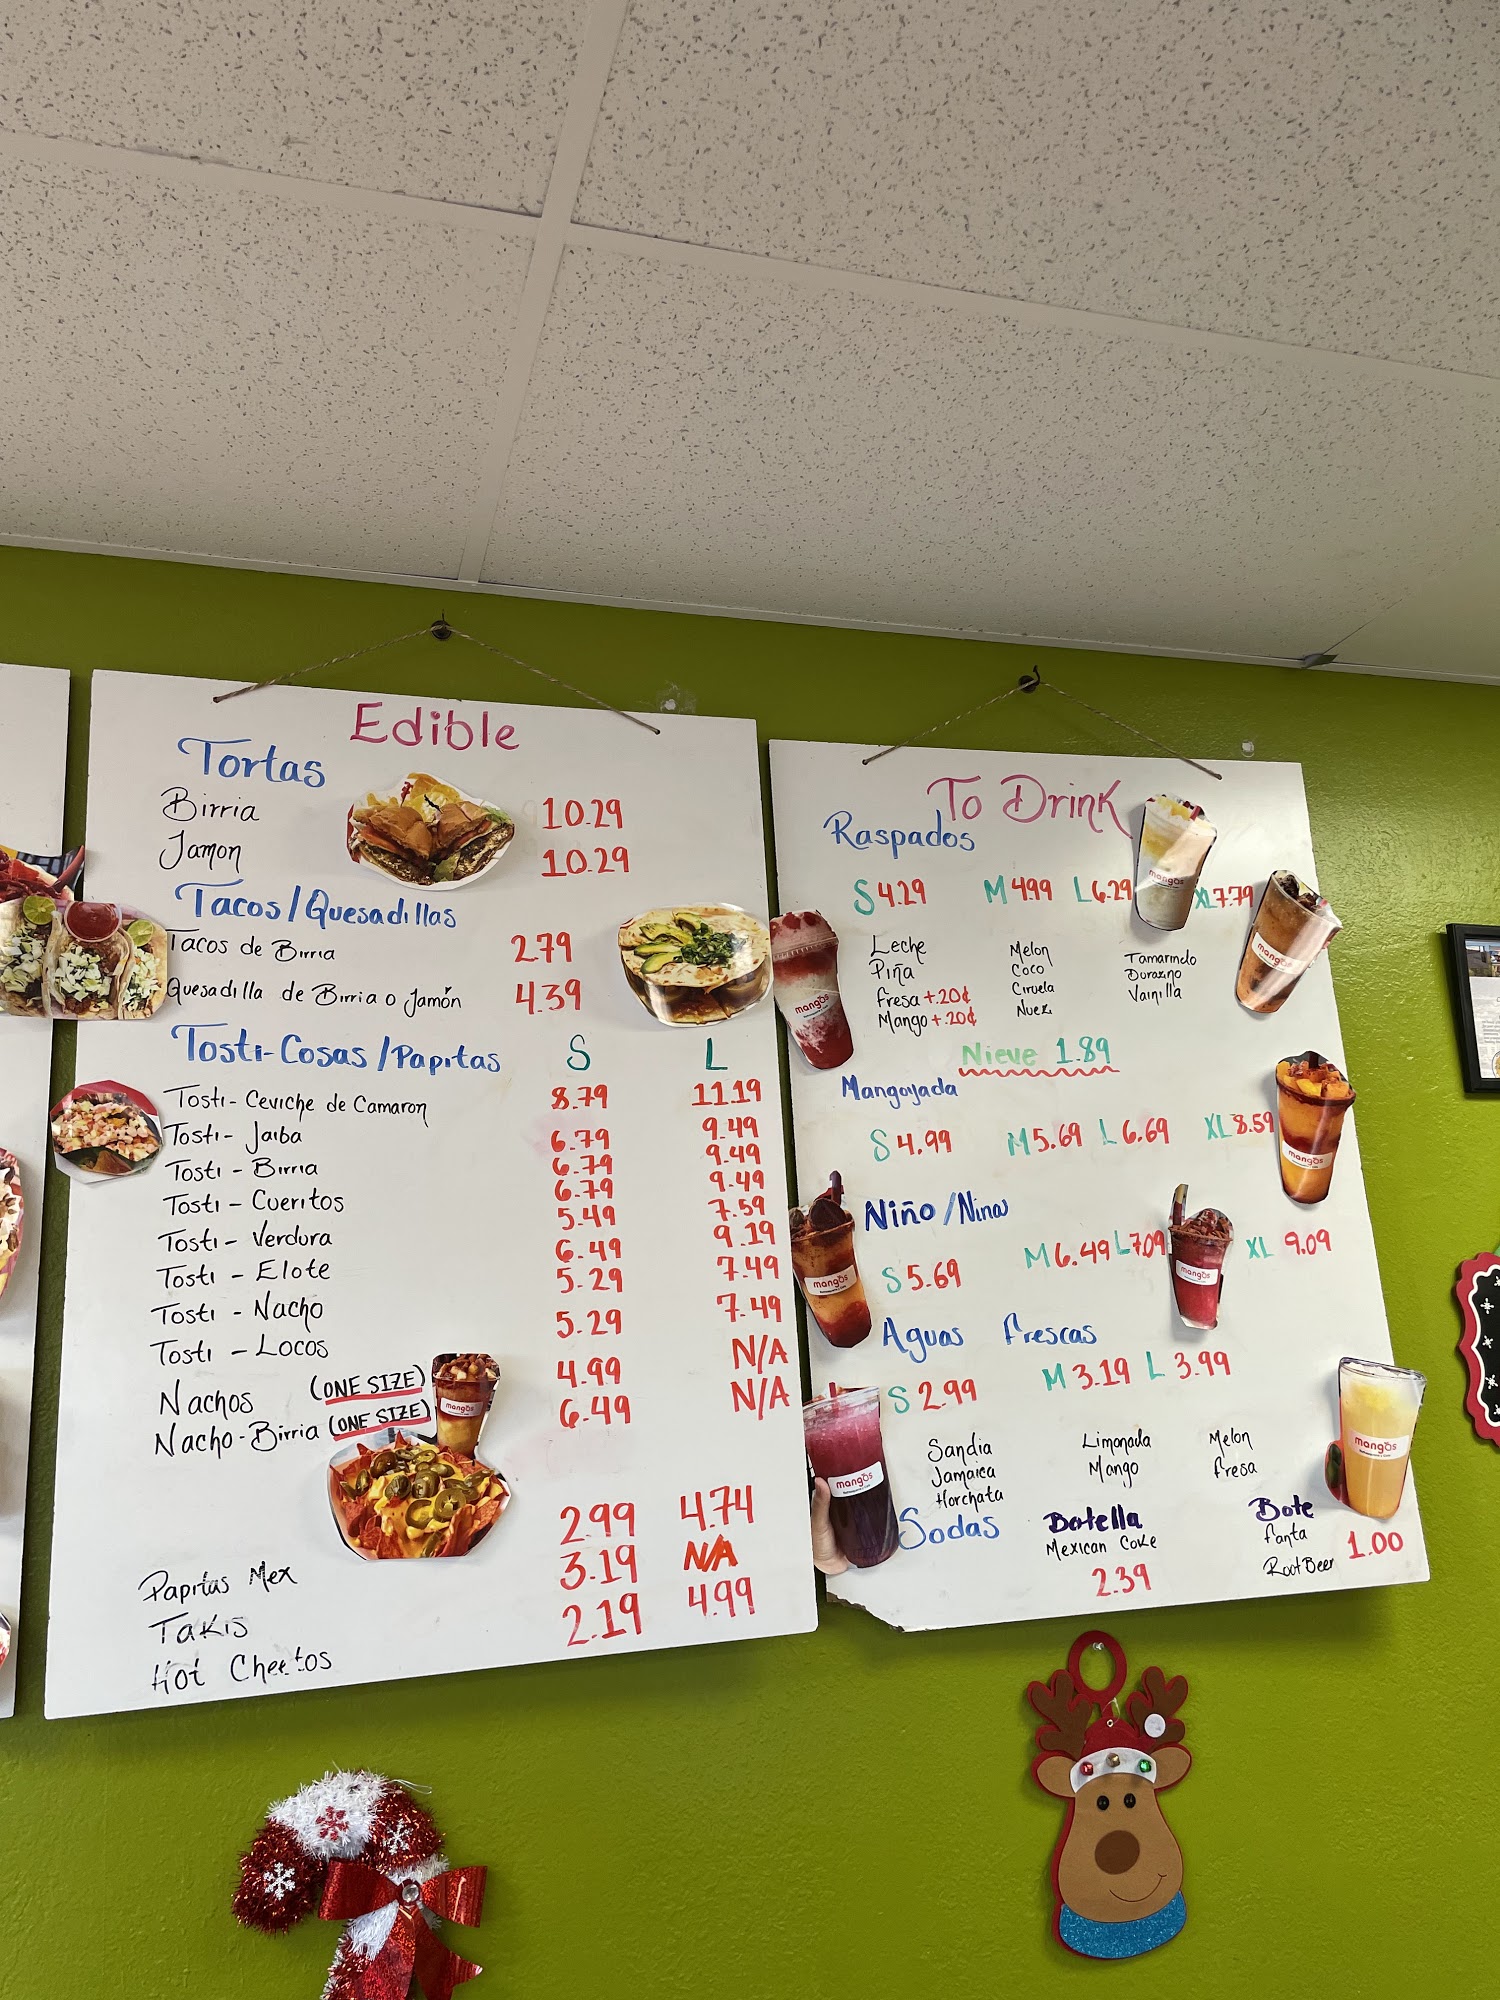 Edible
Tortas
Birria 10.29
Jamon 10.29
Tacos/Quesadillas
Tacos de Birria 2.79
Quesadilla de Birria o Jamón 4.39
Tosti-Cosas/Papitas S L
Tosti-Ceviche de Camaron 8.79 11.19
Tosti- Jaiba 6.79 9.49
Tosti - Birria 6.79 9.49
Tosti - Cueritos 6.79 9.49
Tosti - Verdura 5.49 7.59
Tosti - Elote 6.49 9.19
Tosti - Nacho 5.29 7.49
Tosti - Locos 5.29 7.49
Nachos (ONE SIZE) 4.99 N/A
Nacho-Birria (ONE SIZE) 6.49 N/A
mangos
Papitas Mex 2.99 4.74
Takis 3.19 N/A
Hot Cheetos 2.19 4.99
To Drink
Raspados
S 4.29 M 4.99 L 6.29 XL 7.79
mangos
mangos
mangos
Leche Melon Tamarindo
Piña Coco Durazno
Fresa +.20¢ Ciruela Vainilla
Mango +.20¢ Nuez
Nieve 1.89
Mangoyada
S 4.99 M 5.69 L 6.69 XL 8.59
mangos
Niño/Nina
S 5.69 M 6.49 L 7.09 XL 9.09
mangos
mangos
Aguas Frescas
S 2.99 M 3.19 L 3.99
Sandia Limonada Melon
Jamaica Mango Fresa
Horchata
mangos
mangos
Sodas Botella Bote
Mexican Coke Fanta 1.00
2.39 Root Beer